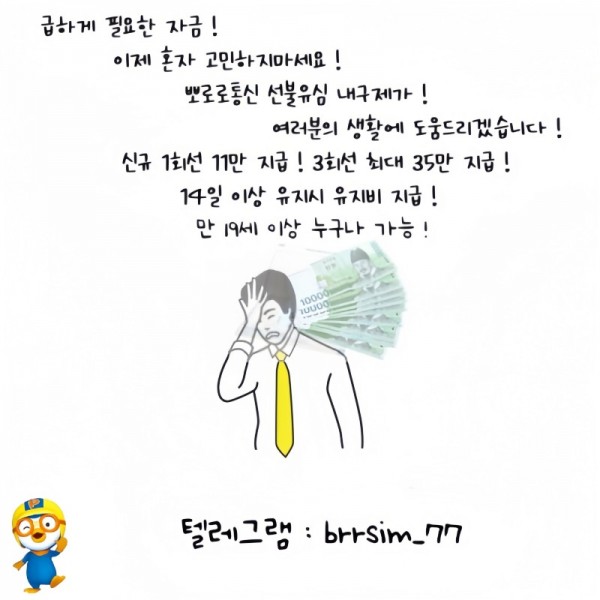 급하게 필요한 자금!
이제 혼자 고민하지마세요!
뽀로로통신 선불유심 내구제가!
여러분의 생활에 도움드리겠습니다!
신규 1회선 11만 지급! 3회선 최대 35만 지급!
14일 이상 유지시 유지비 지급!
만 19세 이상 누구나 가능!
10000
10000
텔레그램 : brrsim_77